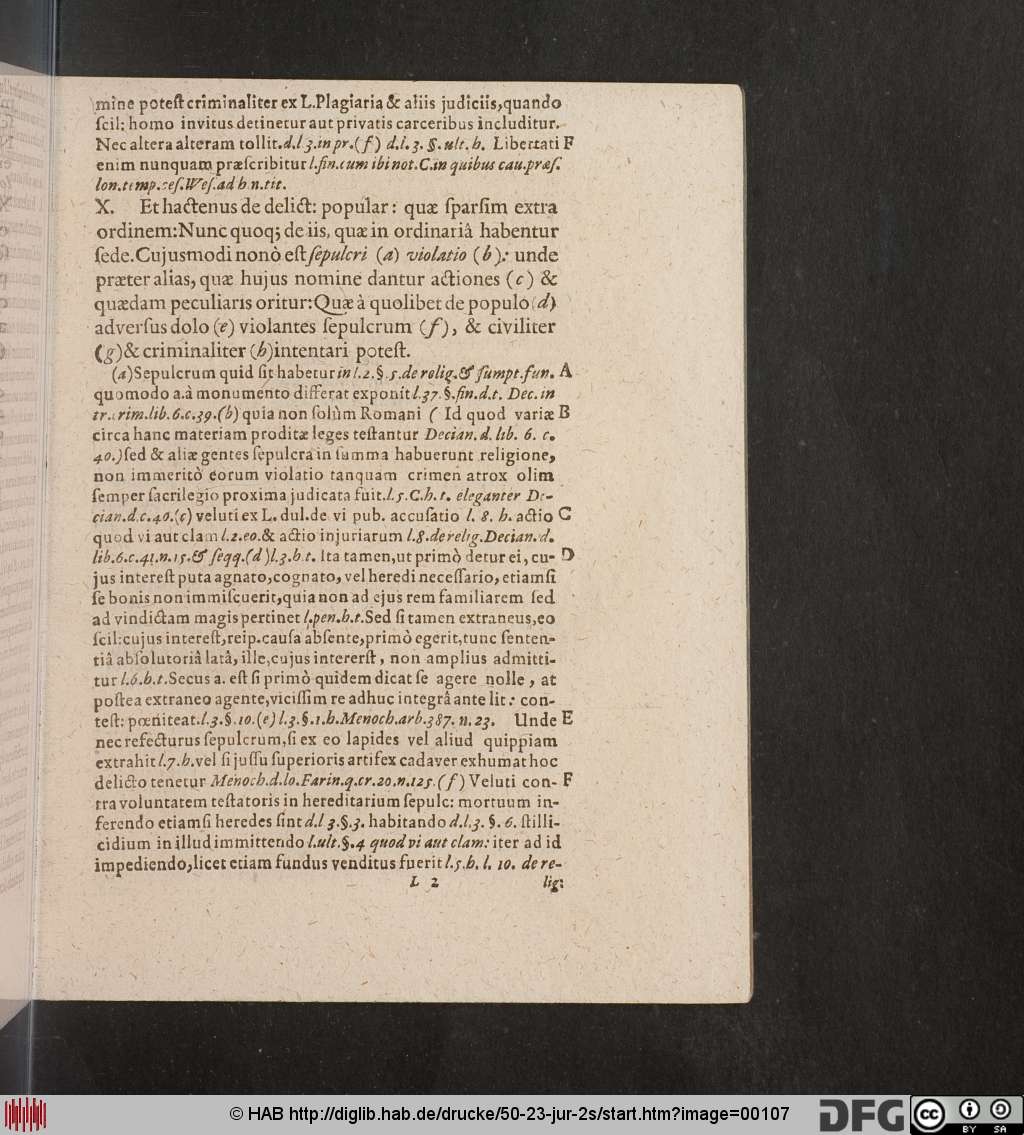 mine poteſt criminaliter ex L. Plagiaria & aliis judiciis, quando
ſcil: homo invitus detinetur aut privatis carceribus includitur.
Nec altera alteram tollit. d. l 3. in pr. (f) d. l. 3. §. ult. h. Libertati F
enim nunquam præſcribitur l. fin. cum ibi not. C. in quibus cau. præſ.
lon. temp. ceſ. Weſ. ad h. n. tit.
X. Et hactenus de delict: popular: quæ ſparſim extra
ordinem: Nunc quoq; de iis, quæ in ordinariâ habentur
ſede. Cujusmodi nonò eſt ſepulcri (a) violatio (b): unde
præter alias, quæ hujus nomine dantur actiones (c) &
quædam peculiaris oritur: Quæ à quolibet de populo (d)
adverſus dolo (e) violantes ſepulcrum (f), & civiliter
(g) & criminaliter (h) intentari poteſt.
(a) Sepulcrum quid ſit habetur in l. 2. §. 5. de relig. & ſumpt. fun. A
quomodo a. à monumento differat exponit l. 37. §. fin. d. t. Dec. in
tr. crim. lib. 6. c. 39. (b) quia non ſolùm Romani ( Id quod variæ B
circa hanc materiam proditæ leges teſtantur Decian. d. lib. 6. c.
40.) ſed & aliæ gentes ſepulcra in ſumma habuerunt religione,
non immeritò eorum violatio tanquam crimen atrox olim
ſemper ſacrilegio proxima judicata fuit. l. 5. C. h. t. eleganter De-
cian. d. c. 40. (c) veluti ex L. dul. de vi pub. accuſatio l. 8. h. actio C
quod vi aut clam l. 2. eo. & actio injuriarum l. 8. de relig. Decian. d.
lib. 6. c. 41. n. 15. & ſeqq. (d) l. 3. h. t. Ita tamen, ut primò detur ei, cu- D
jus intereſt puta agnato, cognato, vel heredi neceſſario, etiamſi
ſe bonis non immiſcuerit, quia non ad ejus rem familiarem ſed
ad vindictam magis pertinet l. pen. h. t. Sed ſi tamen extraneus, eo
ſcil: cujus intereſt, reip. cauſa abſente, primò egerit, tunc ſenten-
tiâ abſolutoriâ latâ, ille, cujus intererſt, non amplius admitti-
tur l. 6. h. t. Secus a. eſt ſi primò quidem dicat ſe agere nolle, at
poſtea extraneo agente, viciſſim re adhuc integrâ ante lit: con-
teſt: pœniteat. l. 3. §. 10. (e) l. 3. §. 1. h. Menoch. arb. 387. n. 23. Unde E
nec refecturus ſepulcrum, ſi ex eo lapides vel aliud quippiam
extrahit l. 7. h. vel ſi juſſu ſuperioris artifex cadaver exhumat hoc
delicto tenetur Menoch. d. lo. Farin. q. cr. 20. n. 125. (f) Veluti con- F
tra voluntatem teſtatoris in hereditarium ſepulc: mortuum in-
ferendo etiamſi heredes ſint d. l 3. §. 3. habitando d. l. 3. §. 6. ſtilli-
cidium in illud immittendo l. ult. §. 4 quod vi aut clam: iter ad id
impediendo, licet etiam fundus venditus fuerit l. 5. h. l. 10. de re-
L 2 lig:
© HAB http://diglib.hab.de/drucke/50-23-jur-2s/start.htm?image=00107 DFG CC BY SA